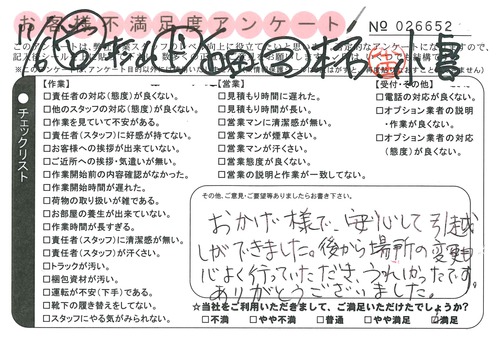 お客様不満足度アンケート
№ 026652
チェックリスト
【作業】
□責任者の対応(態度)が良くない。
□他のスタッフの対応(態度)が良くない。
□作業を見ていて不安がある。
□責任者(スタッフ)に好感が持てない。
□お客様への挨拶が出来ていない。
□ご近所への挨拶・気遣いが無い。
□作業開始前の内容確認がなかった。
□作業開始時間が遅れた。
□荷物の取り扱いが雑である。
□お部屋の養生が出来ていない。
□作業時間が長すぎる。
□責任者(スタッフ)に清潔感が無い。
□責任者(スタッフ)が汗くさい。
□トラックが汚い。
□梱包資材が汚い。
□運転が不安(下手)である。
□靴下の履き替えをしてない。
□スタッフにやる気がみられない。
【営業】
□見積もり時間に遅れた。
□見積もり時間が長い。
□営業マンに清潔感が無い。
□営業マンが煙草くさい。
□営業マンが汗くさい。
□営業態度が良くない。
□営業の説明と作業が一致してない。
【受付・その他】
□電話の対応が良くない。
□オプション業者の説明
・作業が良くない。
□オプション業者の対応
(態度)が良くない。
その他、ご意見・ご要望等ありましたらお書き下さい。
おかげ様で、安心して引越
しができました。後から場所の変更も
心よく行っていただき、うれしかったです。
ありがとうございました。
☆当社をご利用いただきまして、ご満足いただけたでしょうか?
□不満 □やや不満 □普通 □やや満足 □満足